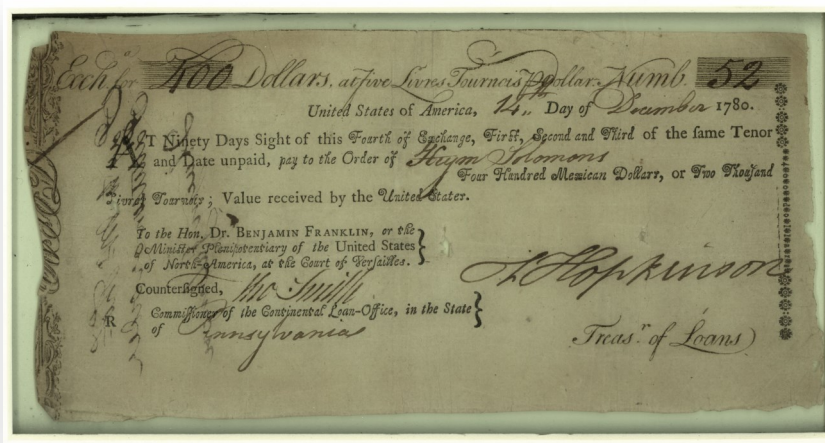 Exchᵃ for 400 Dollars, at five Livres Tournois ⅌ Dollar. Numb. 52
United States of America, 14.. Day of December 1780.
AT Ninety Days Sight of this Fourth of Exchange, First, Second and Third of the same Tenor
and Date unpaid, pay to the Order of Haym Solomons
Four Hundred Mexican Dollars, or Two Thousand
Livres Tournois; Value received by the United States.
To the Hon. Dr. BENJAMIN FRANKLIN, or the
Minister Plenipotentiary of the United States
of North-America, at the Court of Versailles.
Countersigned, Tho Smith
Commissioner of the Continental Loan-Office, in the State
of Pennsylvania
R
F Hopkinson
Treasʳ of Loans